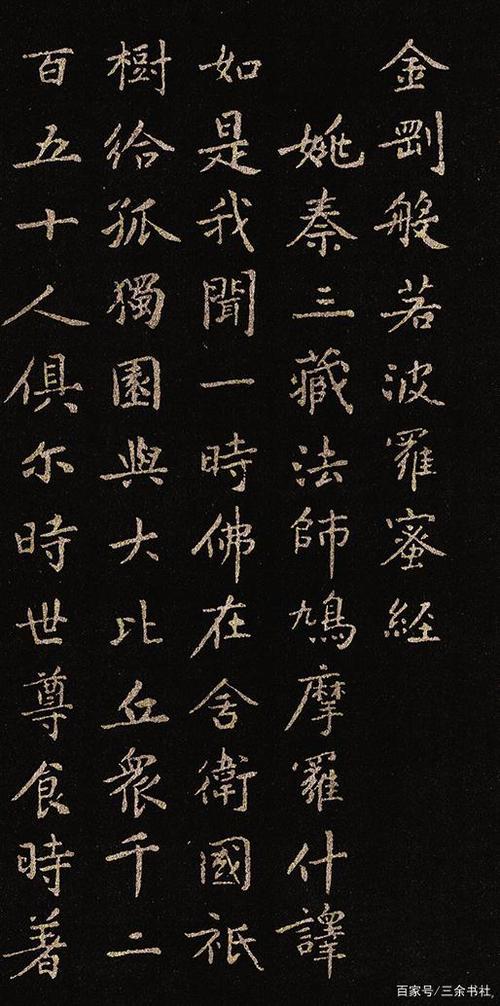 金剛般若波羅蜜経
姚秦三藏法師鳩摩羅什譯
如是我聞一時佛在舍衛國祇
樹給孤獨園與大比丘衆千二
百五十人俱尔時世尊食時著
百家号/三余书社